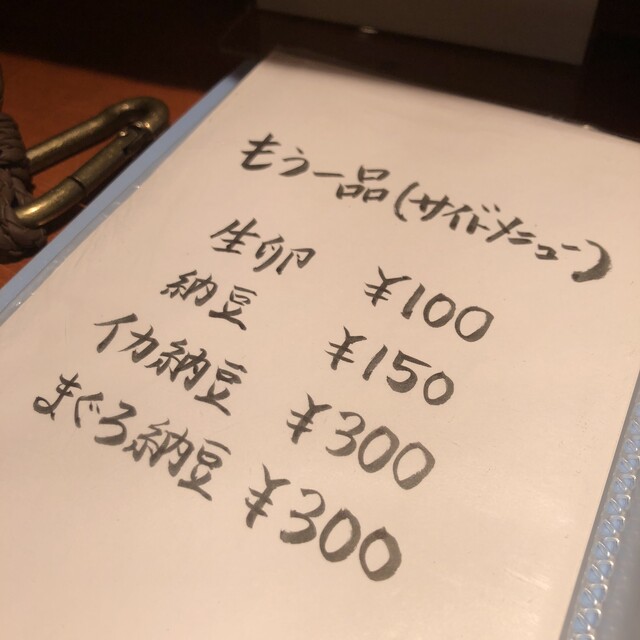 もう一品(サイドメニュー)
生卵 ¥100
納豆 ¥150
イカ納豆 ¥300
まぐろ納豆 ¥300